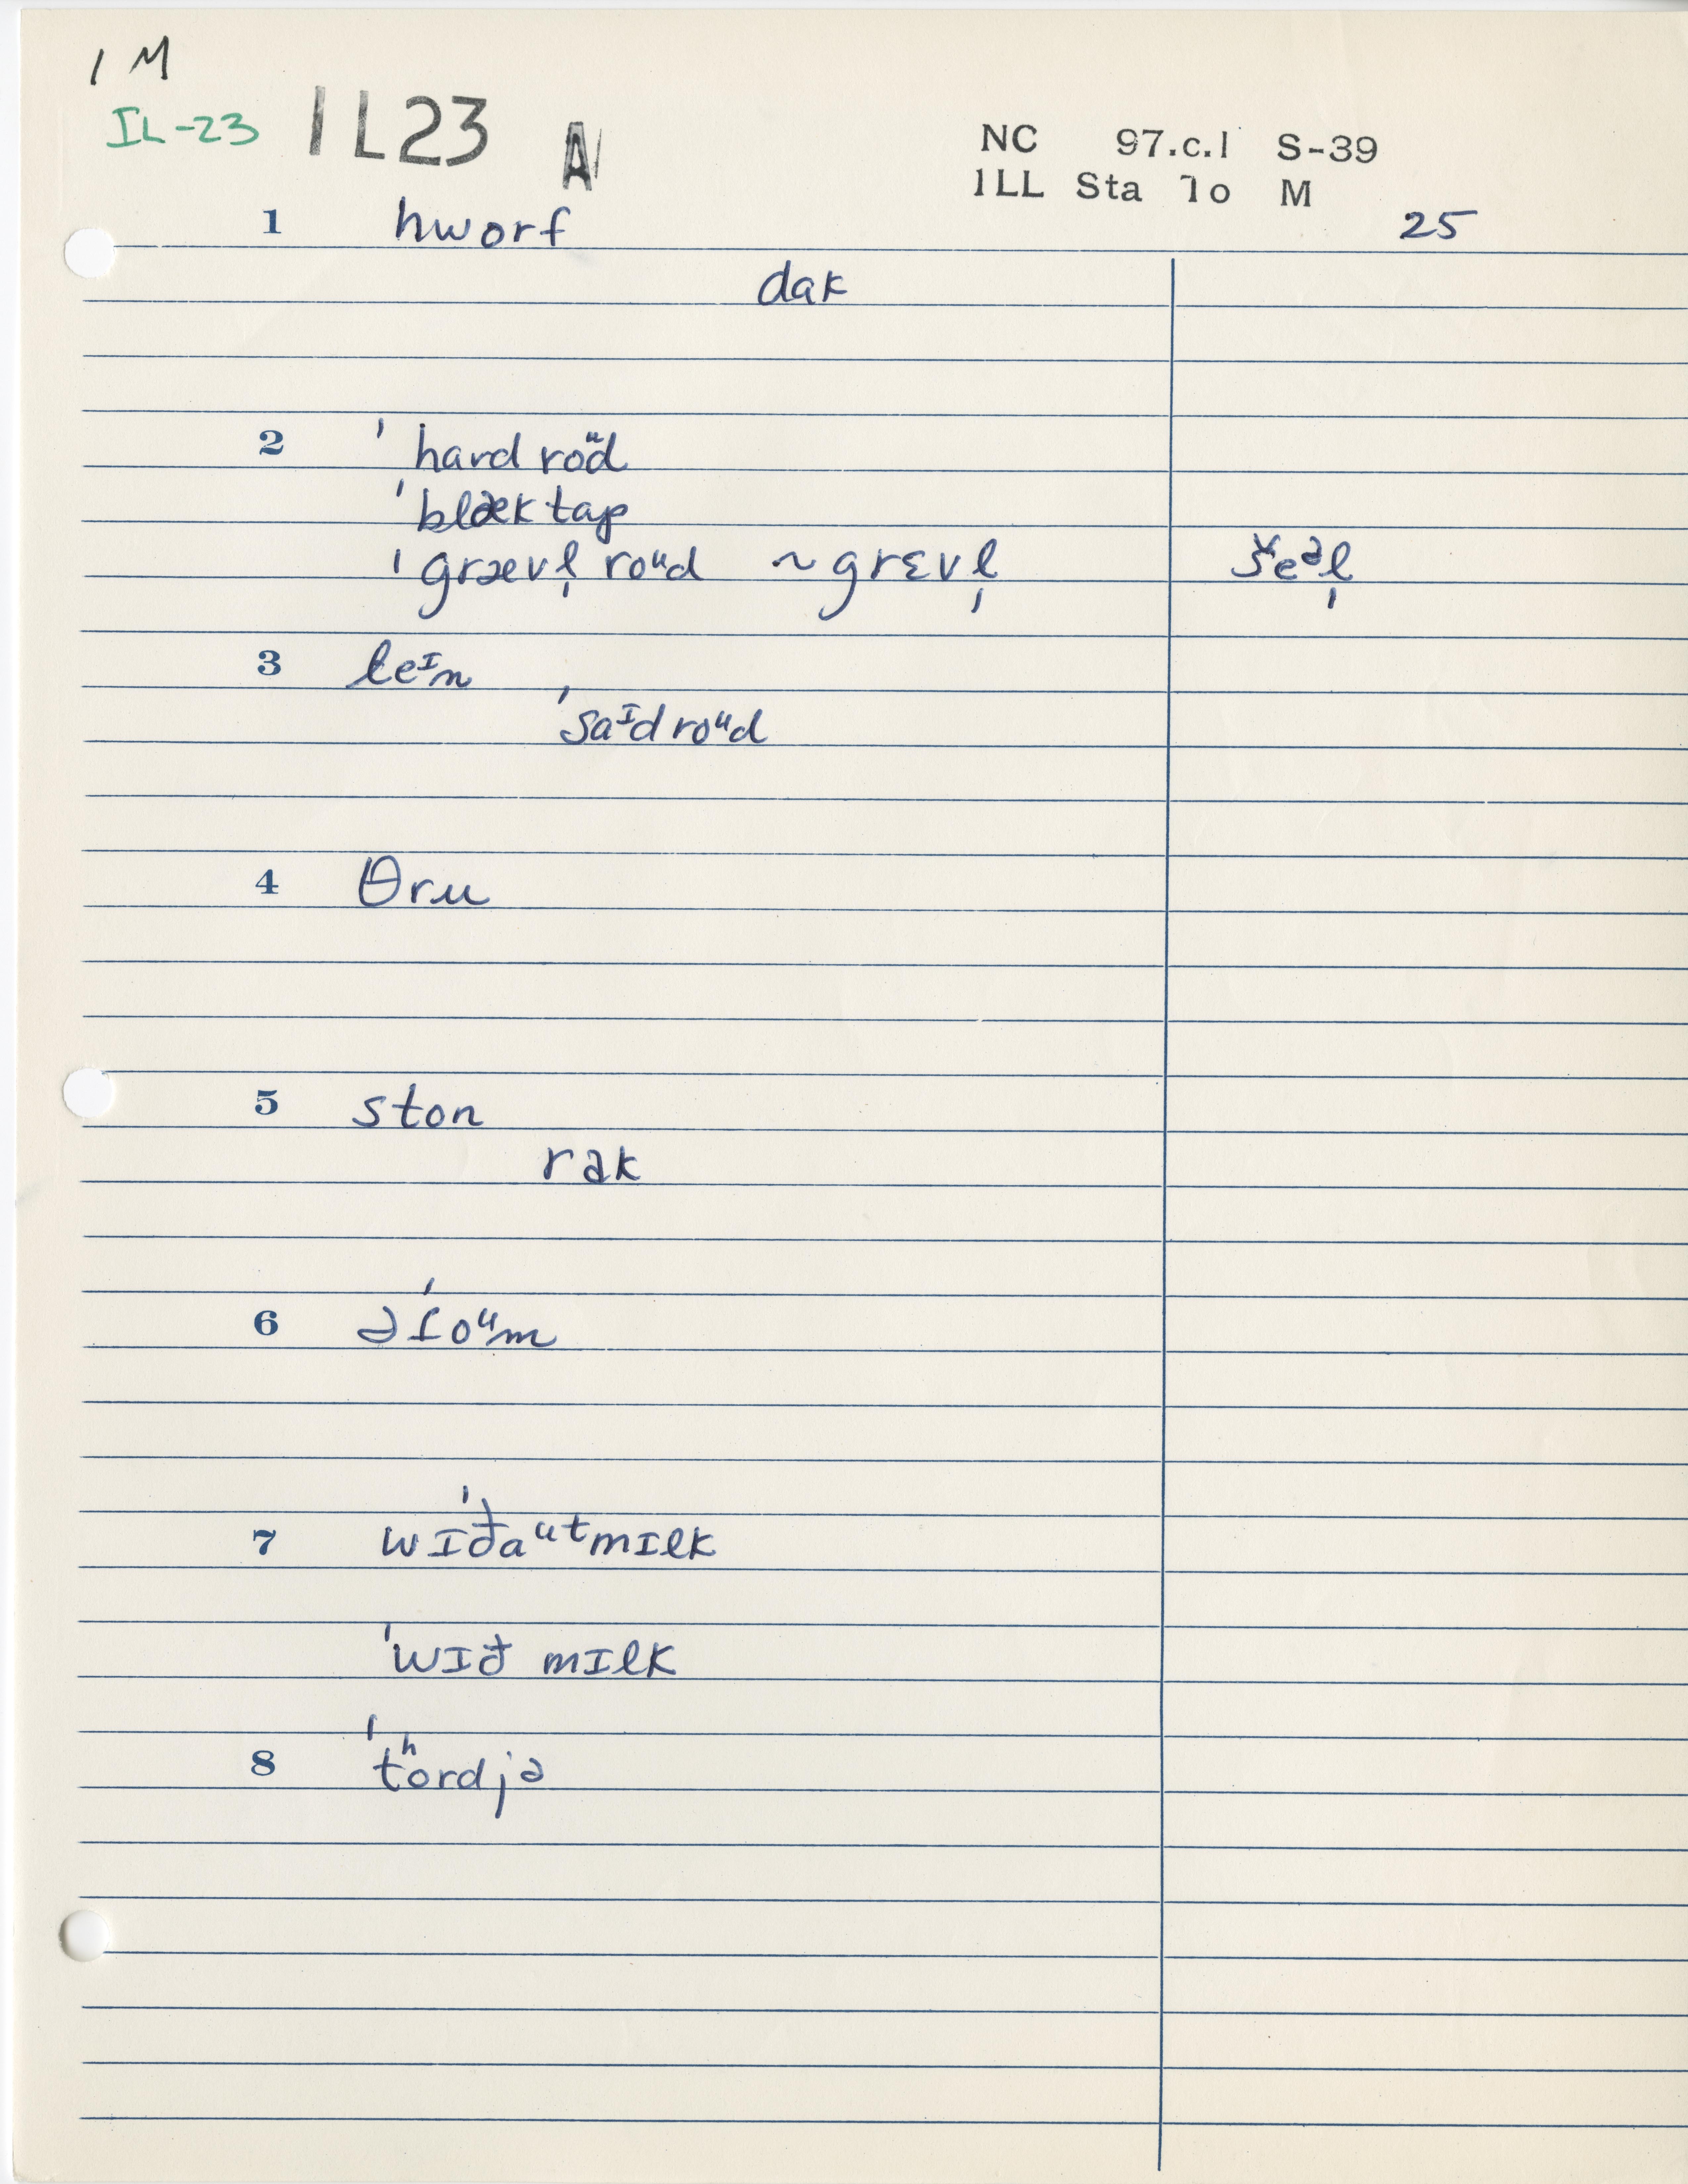 1 M
IL-23 IL23 A
NC 97.c.1 S-39
ILL Sta To M
25
1 hworf
dak
2 ˈhardroᵘd
ˈblæktap
ˈgrævl̩ roᵘd ~ grɛvl̩ šeᵊl̩
3 leᴵn
ˈsaᴵdroᵘd
4 θru
5 ston
rak
6
7 wɪˈðaᵘtmɪlk
ˈwɪð mɪlk
8 ˈtʰordjə